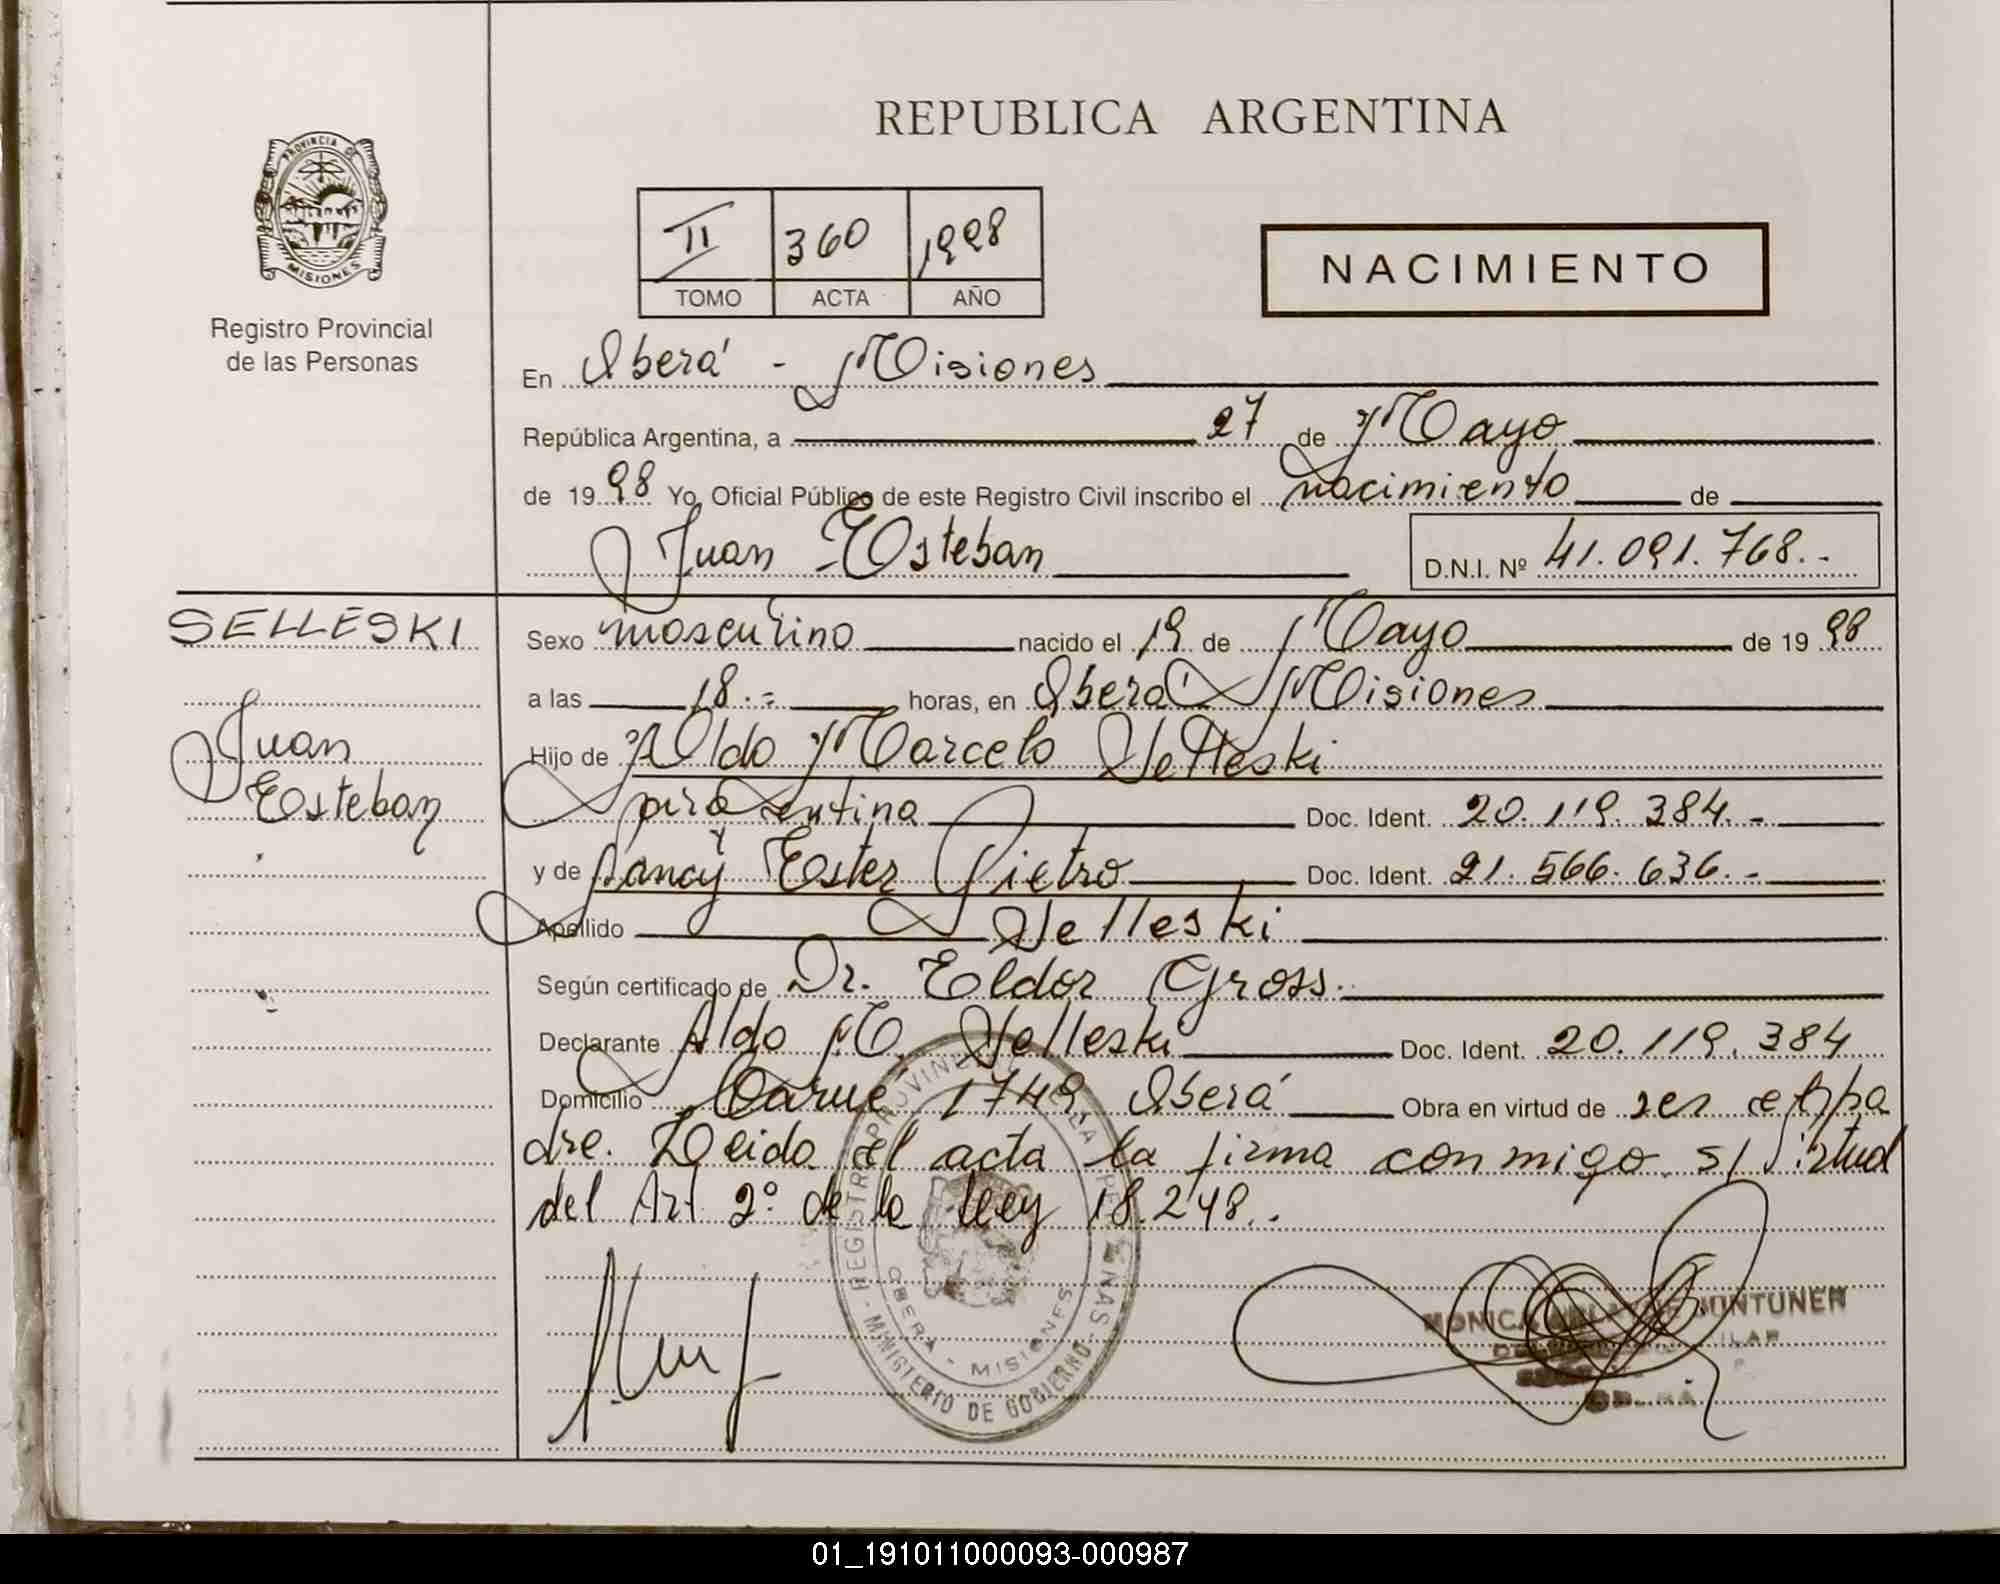 REPUBLICA ARGENTINA
PROVINCIA DE
MISIONES
Registro Provincial
de las Personas
II 360 1998
TOMO ACTA AÑO
NACIMIENTO
En Oberá - Misiones
República Argentina, a 27 de Mayo
de 1998 Yo, Oficial Público de este Registro Civil inscribo el nacimiento de
Juan Esteban
D.N.I. Nº 41.091.768.-
SELLESKI
Juan
Esteban
Sexo masculino nacido el 19 de Mayo de 1998
a las 18.= horas, en Oberá Misiones
Hijo de Aldo Marcelo Selleski
argentina Doc. Ident. 20.119.384.-
y de Nancy Ester Pietro Doc. Ident. 21.566.636.-
Apellido Selleski
Según certificado de Dr. Eldor Gross.
Declarante Aldo M. Selleski Doc. Ident. 20.119.384
Domicilio Carue 1749, Oberá Obra en virtud de ser el pa
dre. Leida el acta la firma conmigo s/ Virtud
del Art 2º de la Ley 18.248..
REGISTRO PROVINCIAL DE LAS PERSONAS
MINISTERIO DE GOBIERNO
OBERA - MISIONES
MONICA
01_191011000093-000987